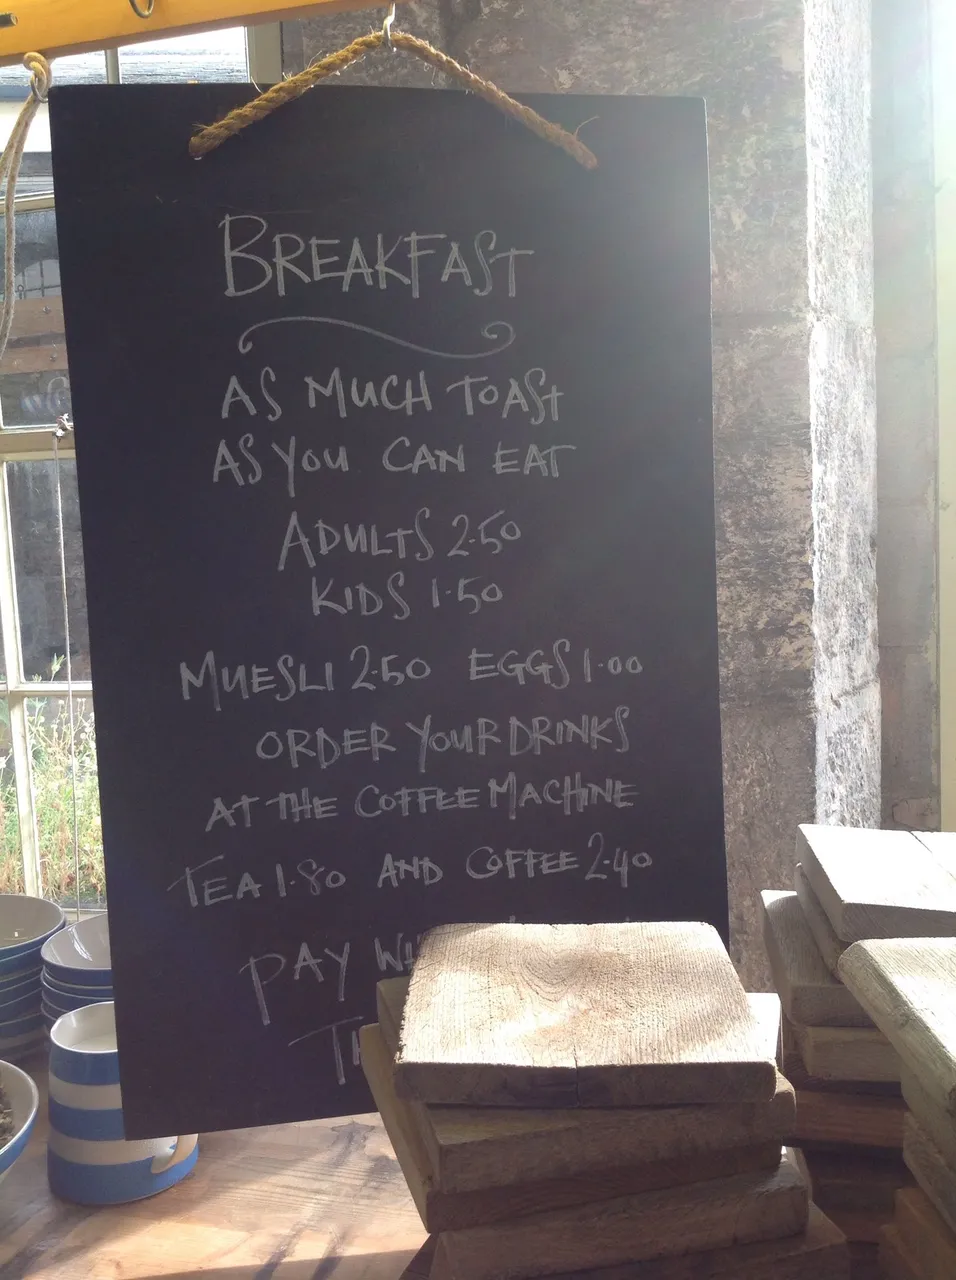 BREAKFAST
AS MUCH TOAST
AS YOU CAN EAT
ADULTS 2.50
KIDS 1.50
MUESLI 2.50 EGGS 1.00
ORDER YOUR DRINKS
AT THE COFFEE MACHINE
TEA 1.80 AND COFFEE 2.40
PAY